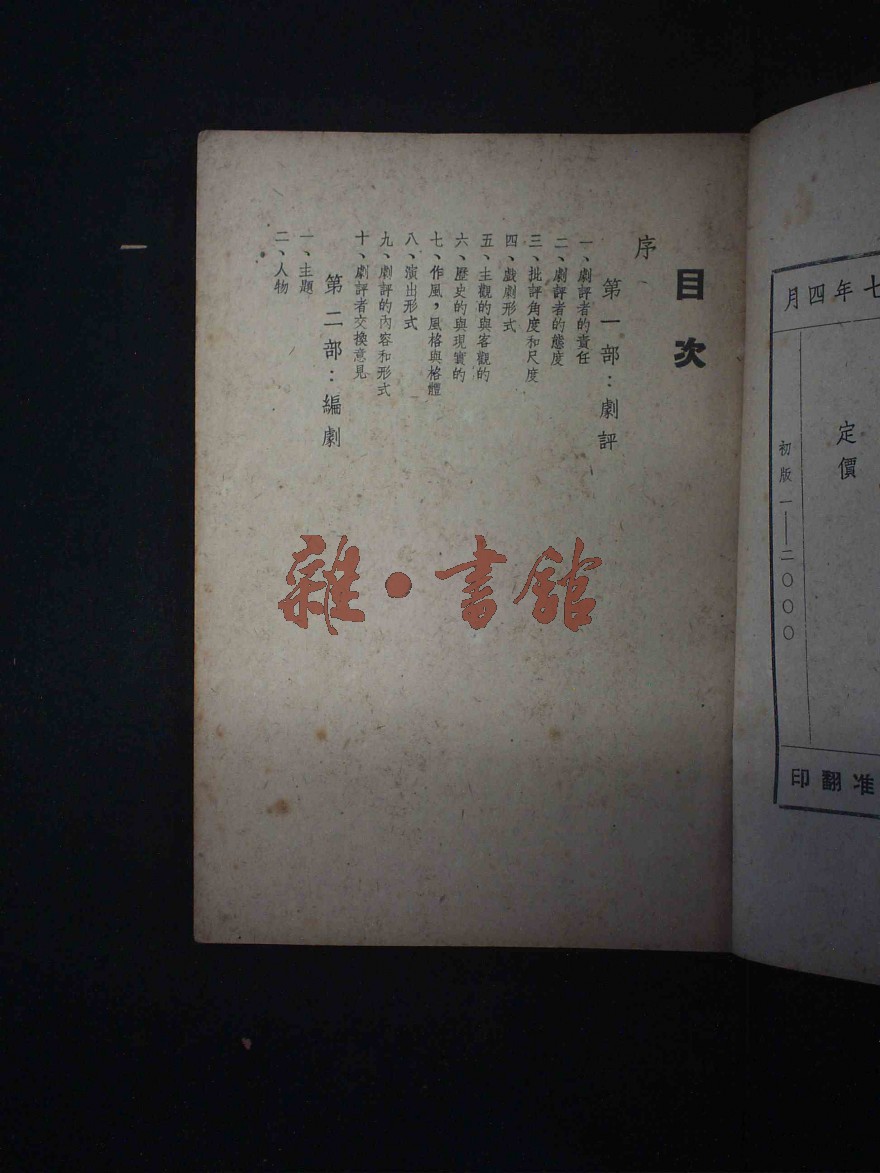 七年四月
定價
初版一——二〇〇〇
准翻印
目次
序
第一部：劇評
一、劇評者的責任
二、劇評者的態度
三、批評角度和尺度
四、戲劇形式
五、主觀的與客觀的
六、歷史的與現實的
七、作風，風格與格體
八、演出形式
九、劇評的內容和形式
十、劇評者交換意見
第二部：編劇
一、主題
二、人物
雜·書館